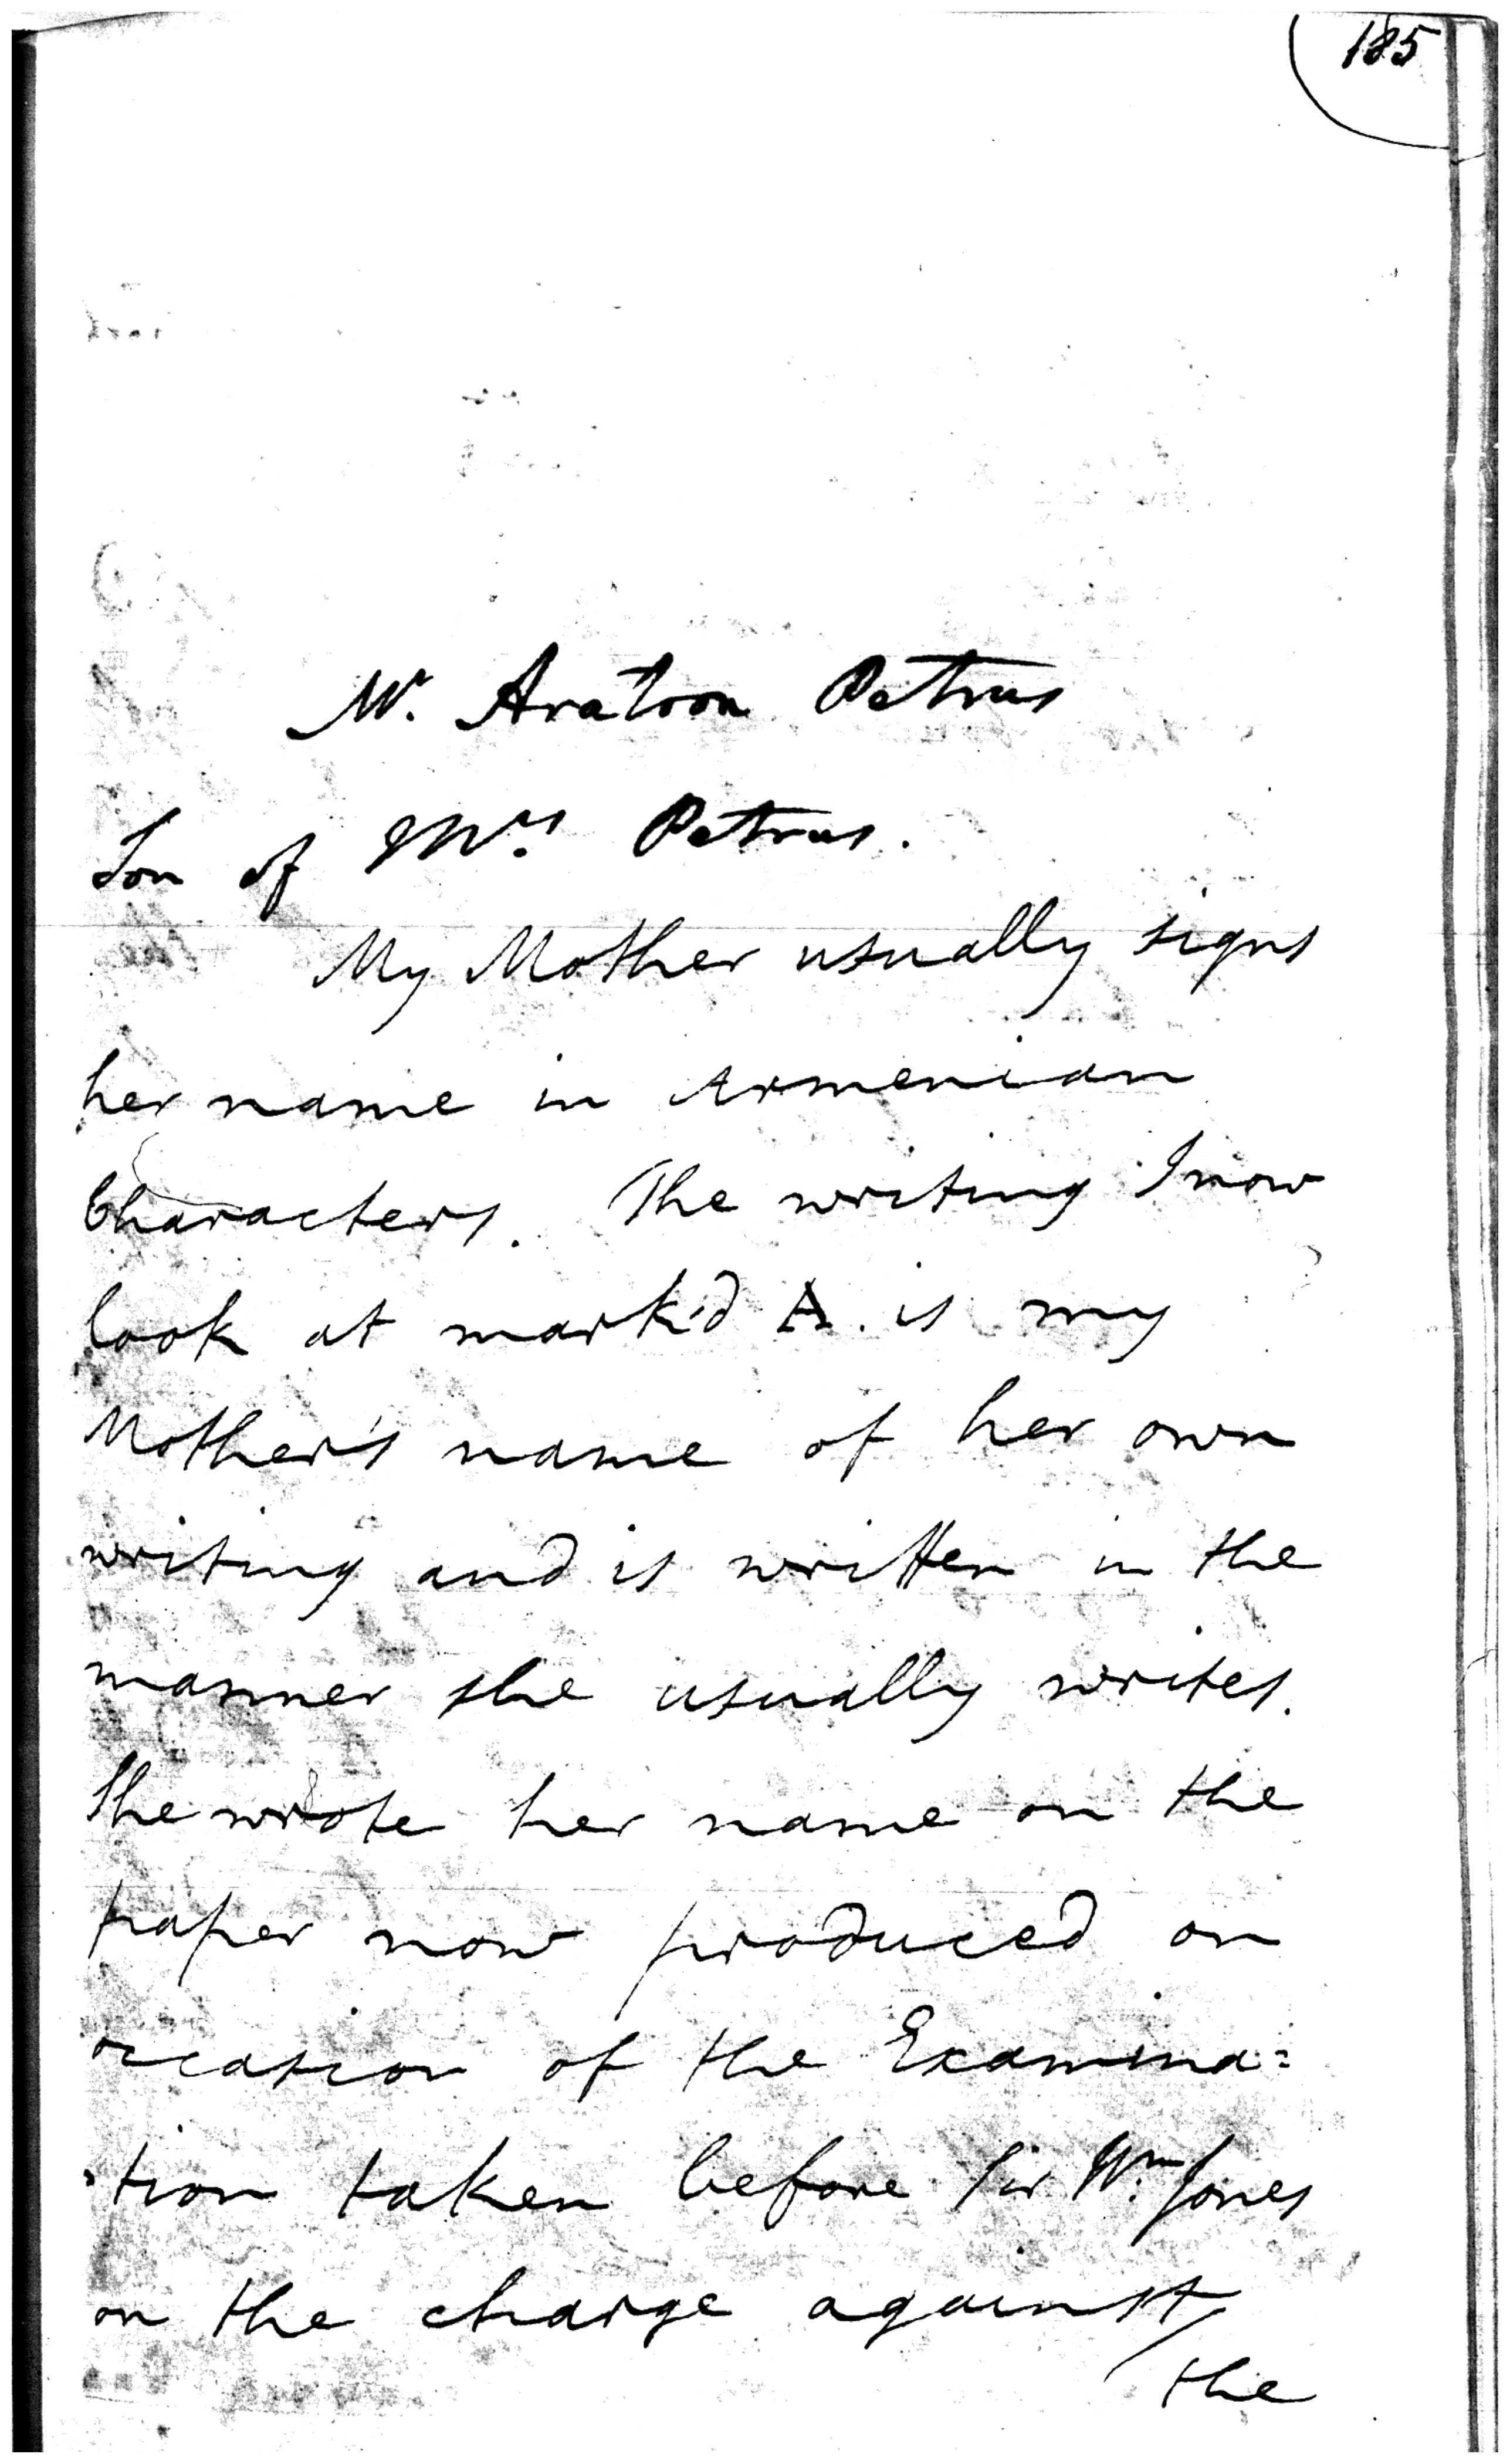 185
Mr. Aratoon Petrus
Son of Mrs. Petrus.
My Mother usually signs
her name in Armenian
Characters. The writing I now
look at mark'd A. is my
Mother's name of her own
writing and is written in the
manner she usually writes.
She wrote her name on the
paper now produced on
occasion of the Examina=
=tion taken before Sir Wm. Jones
on the charge against
the